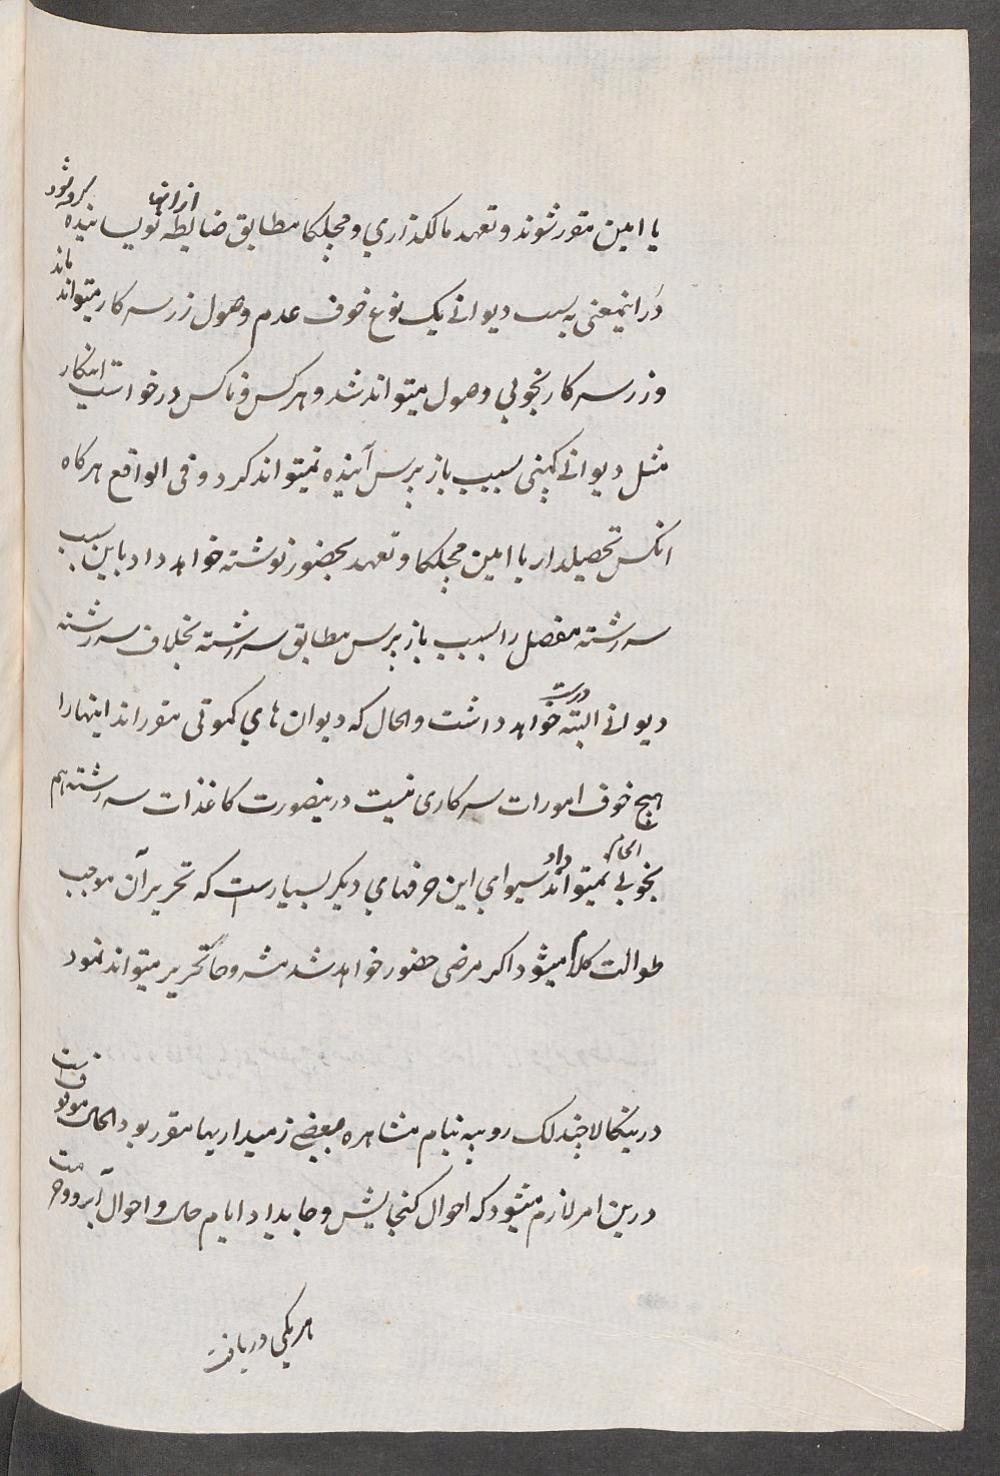 یا امین مقرر شوند و تعهد مالکذاری و مچلکا مطابق ضابطه از انها نویسانیده کرفه شود
در اینمعنی به سبب دیوانی یک نوع خوف عدم وصول زر سرکار میتواند ماند
و زر سرکار بخوبی وصول میتواند شد و هر کس و ناکس درخواست اینکار
مثل دیوانی کمپنی بسبب باز پرس آینده نمیتواند کرد و فی الواقع هرکاه
انکس تحصیلدار یا امین مچلکا و تعهد بحضور نوشته خواهد داد باین سبب
سررشته مفصل را بسبب باز پرس مطابق سررشته بخلاف سررشته
دیوانی البته درست خواهد داشت و الحال که دیوان های کموتی مقرر اند اینها را
هیچ خوف امورات سرکاری نیست درینصورت کاغذات سررشته هم
بخوبی انجام نمیتواند داد سیوای این حرفهای دیکر بسیار است که تحریر آن موجب
طوالت کلام میشود اکر مرضی حضور خواهد شد مشروحاً تحریر میتواند نمود
در بنکالا چند لک روپیه بنام مشاهره بعضی زمیداریها مقرر بود الحال موقوف است
درین امر لازم میشود که احوال کنجایش و جایداد ایام حال و احوال آبرو و حرمت
هر یکی دریافت